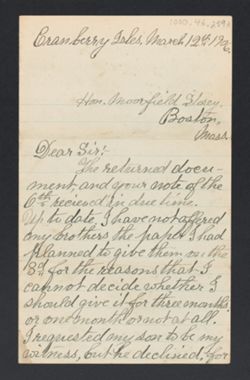 Cranberry Isles, March 12th
Hon. Moorfield Storey,
Boston,
Mass.
Dear Sir:
The returned docu-
ment and your note of the
6th recieved in due time.
Up to date, I have not offered
my brothers the paper I had
planned to give them on the
8th for the reasons that I
cannot decide whether I
should give it for three months
or one month or not at all.
I requested my son to be my
witness, but he declined, for